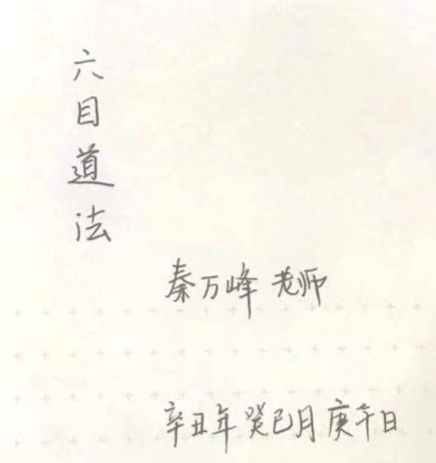 六目道法
秦万峰 老师
辛丑年 癸巳月 庚午日